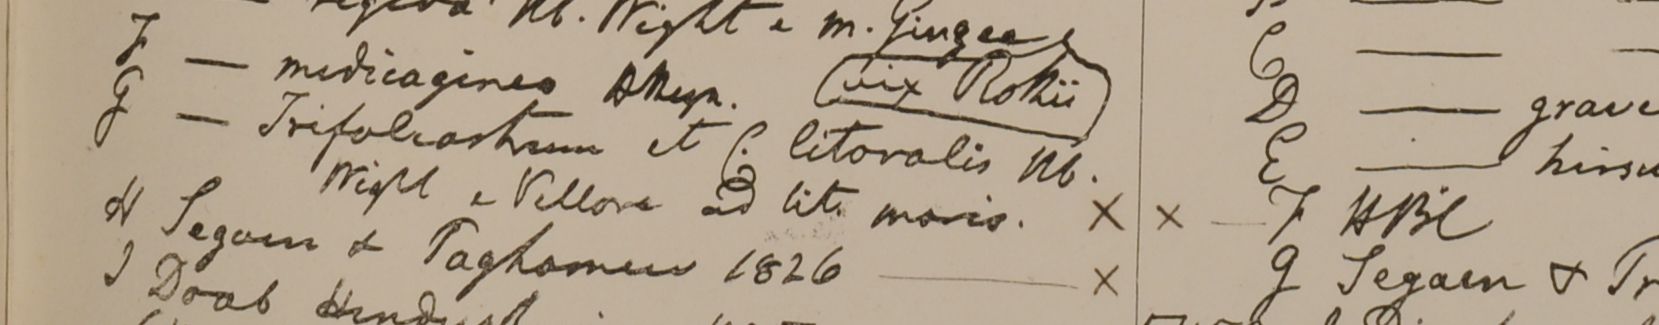 Hb. Wight e m. Gingee
F — medicaginea HHeyn. (vix Rothii)
G — Trifoliastrum et C. litoralis Hb.
Wight e Vellore ad lit. maris. ×
H Segaen & Taghamew 1826 — ×
I Doab
C —
D — grave
E — hirsu
× — F HBC
G Segaen & Tr